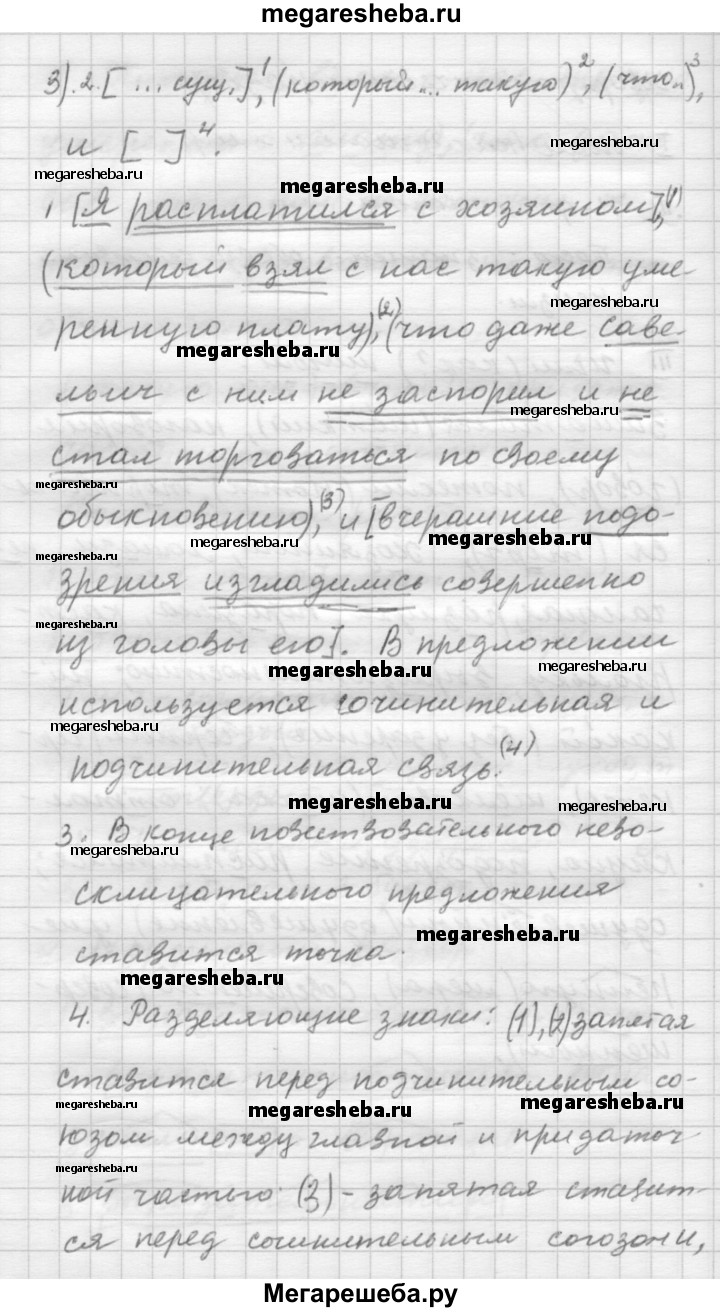 megaresheba.ru
3).2.[ ... сущ.]¹, (который... такую)², (что..)³,
и [ ]⁴.
megaresheba.ru
megaresheba.ru
1 [Я расплатился с хозяином],(1)
(который взял с нас такую уме-
megaresheba.ru
ренную плату),(2) (что даже Саве-
megaresheba.ru
льич с ним не заспорил и не
megaresheba.ru
стал торговаться по своему
megaresheba.ru
обыкновению),(3) и [вчерашние подо-
megaresheba.ru
megaresheba.ru
megaresheba.ru
зрения изгладились совершенно
megaresheba.ru
из головы его]. В предложении
megaresheba.ru
megaresheba.ru
используется сочинительная и
megaresheba.ru
подчинительная связь.(4)
megaresheba.ru
megaresheba.ru
3. В конце повествовательного нево-
megaresheba.ru
склицательного предложения
ставится точка.
megaresheba.ru
megaresheba.ru
4. Разделяющие знаки: (1),(2) запятая
ставится перед подчинительным со-
megaresheba.ru
megaresheba.ru
megaresheba.ru
юзом между главной и придаточ-
megaresheba.ru
ной частью. (3) - запятая ставит-
ся перед сочинительным союзом и,
Мегарешеба.ру